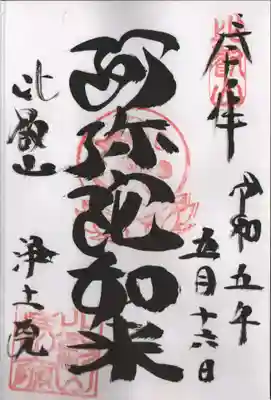 奉拝
令和五年
五月十六日
阿弥陀如来
比叡山
浄土院